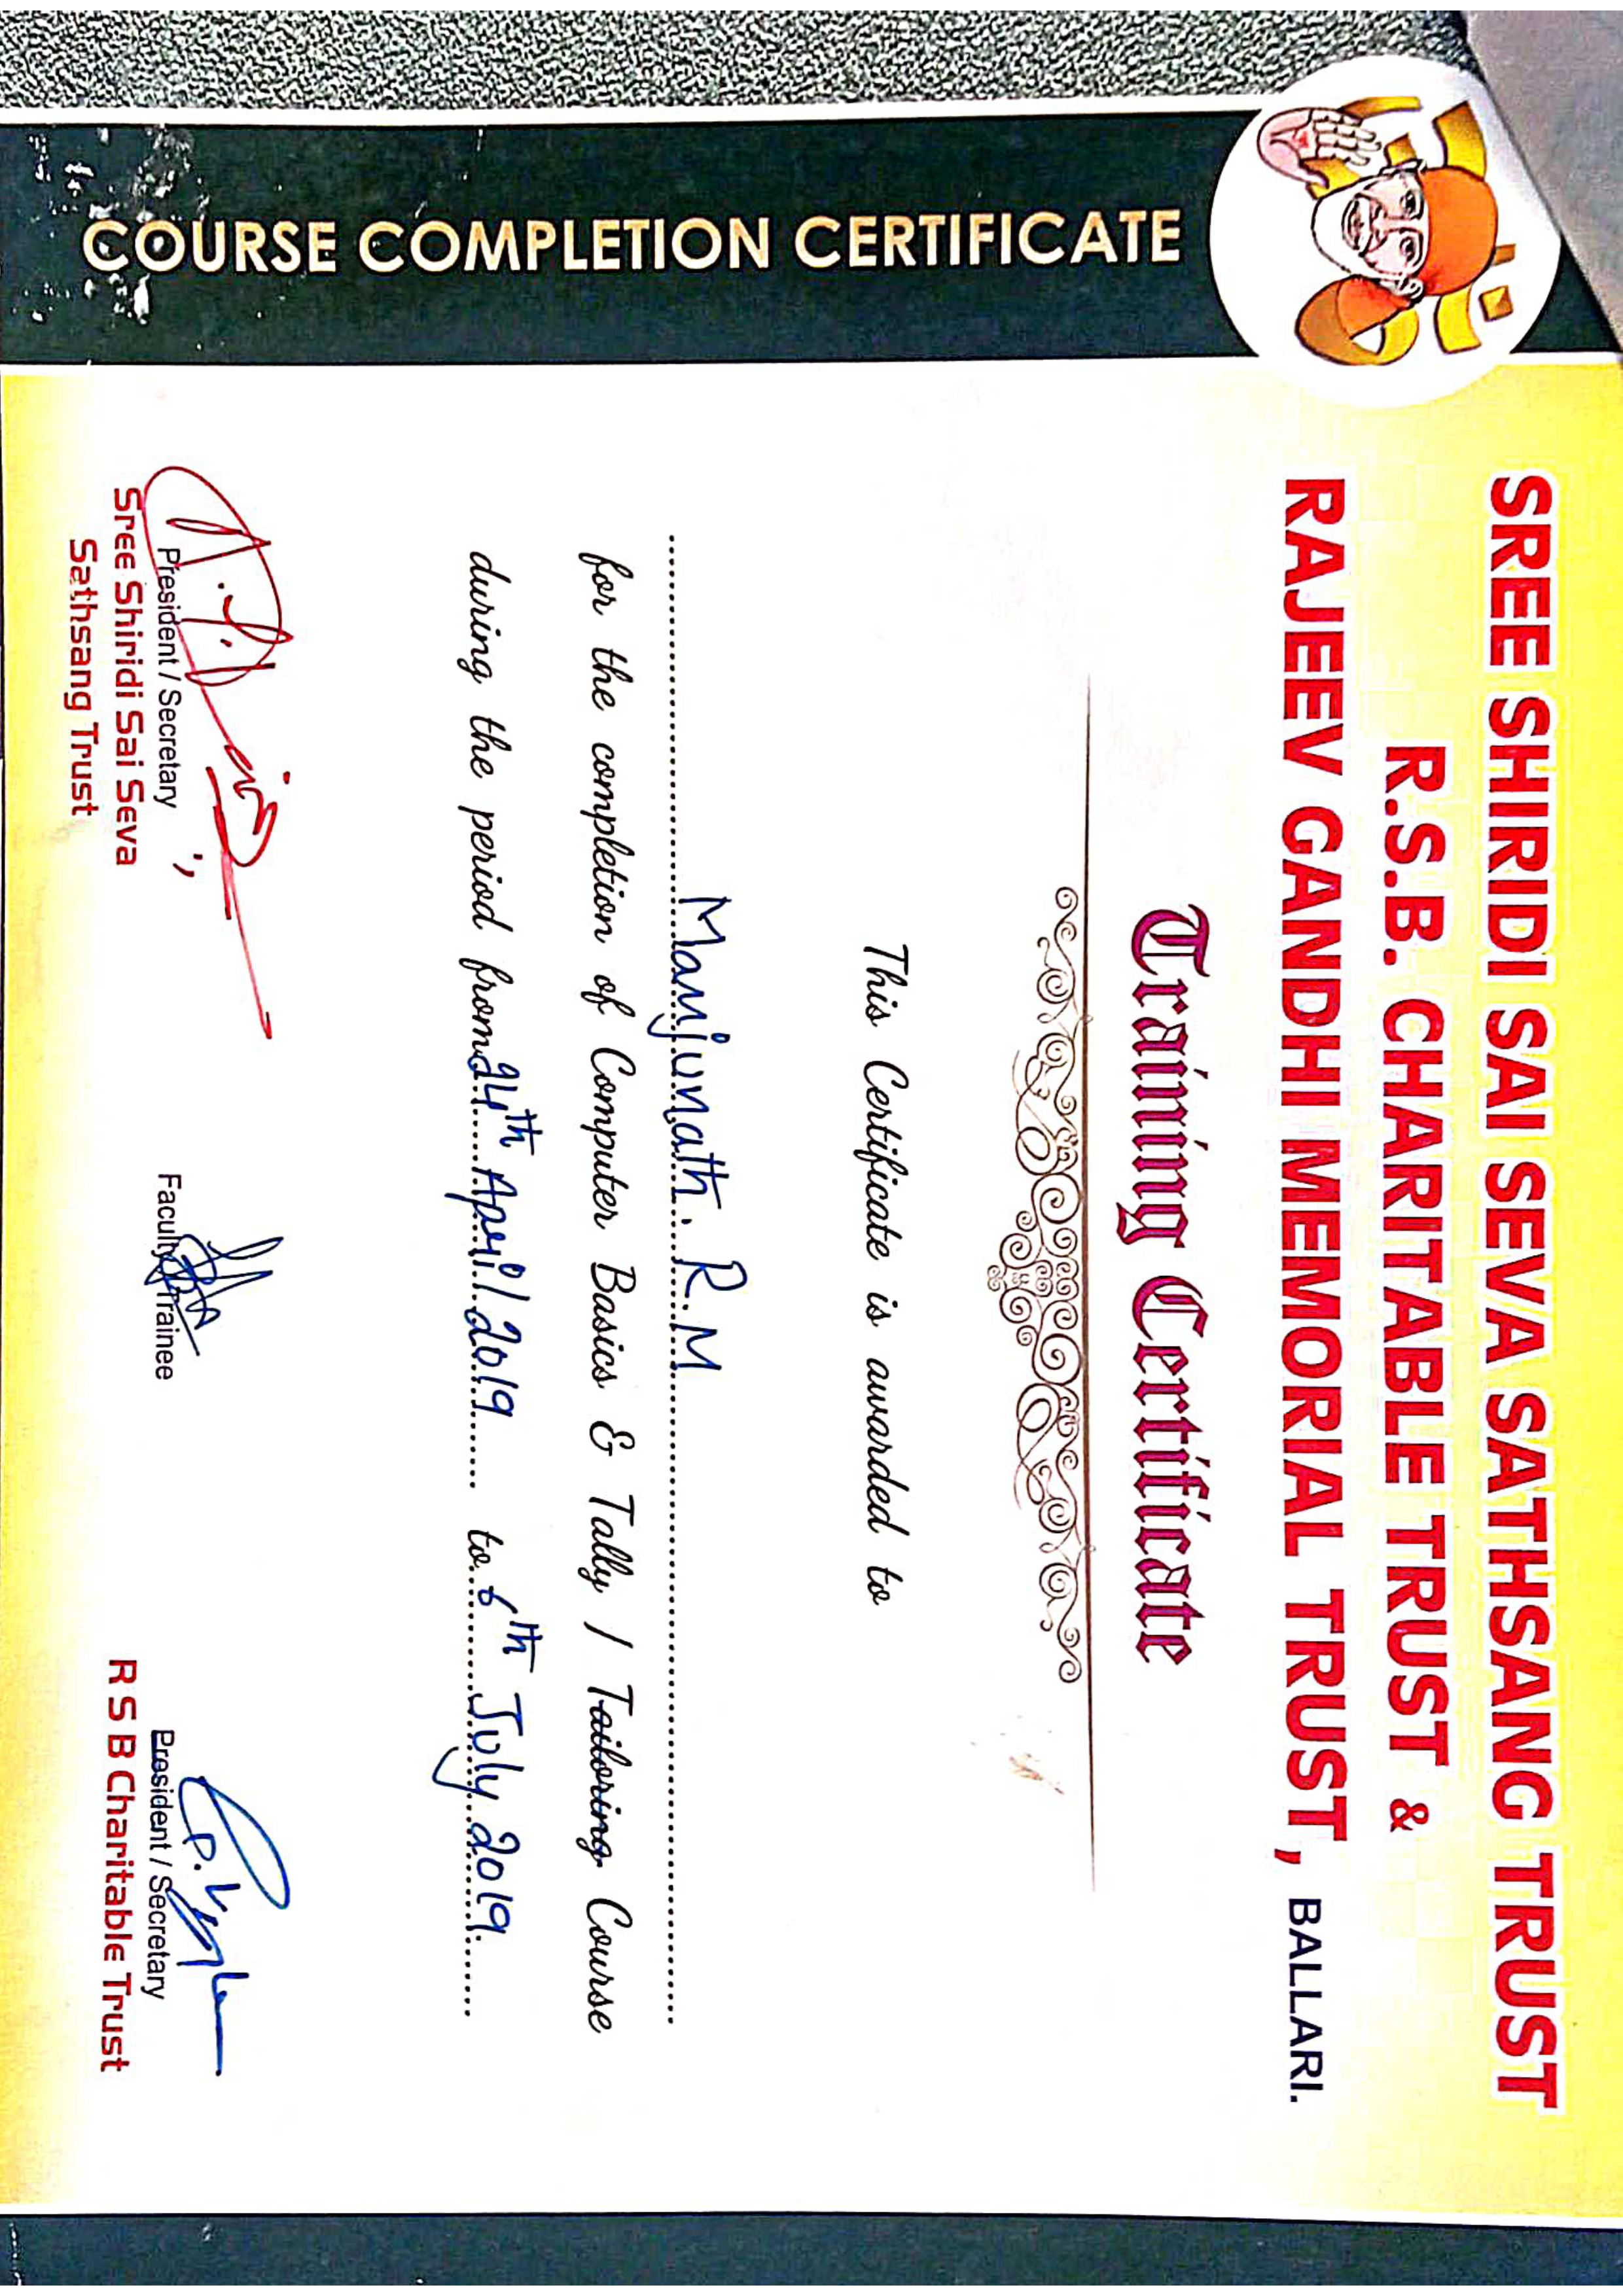 SREE SHIRIDI SAI SEVA SATHSANG TRUST
R.S.B. CHARITABLE TRUST &
RAJEEV GANDHI MEMORIAL TRUST, BALLARI.
Training Certificate
COURSE COMPLETION CERTIFICATE
This Certificate is awarded to
Manjunath. R.M
for the completion of Computer Basics & Tally / Tailoring Course
during the period from 24th April 2019 to 6th July 2019.
President / Secretary
Sree Shiridi Sai Seva
Sathsang Trust
Faculty / Trainee
President / Secretary
R S B Charitable Trust